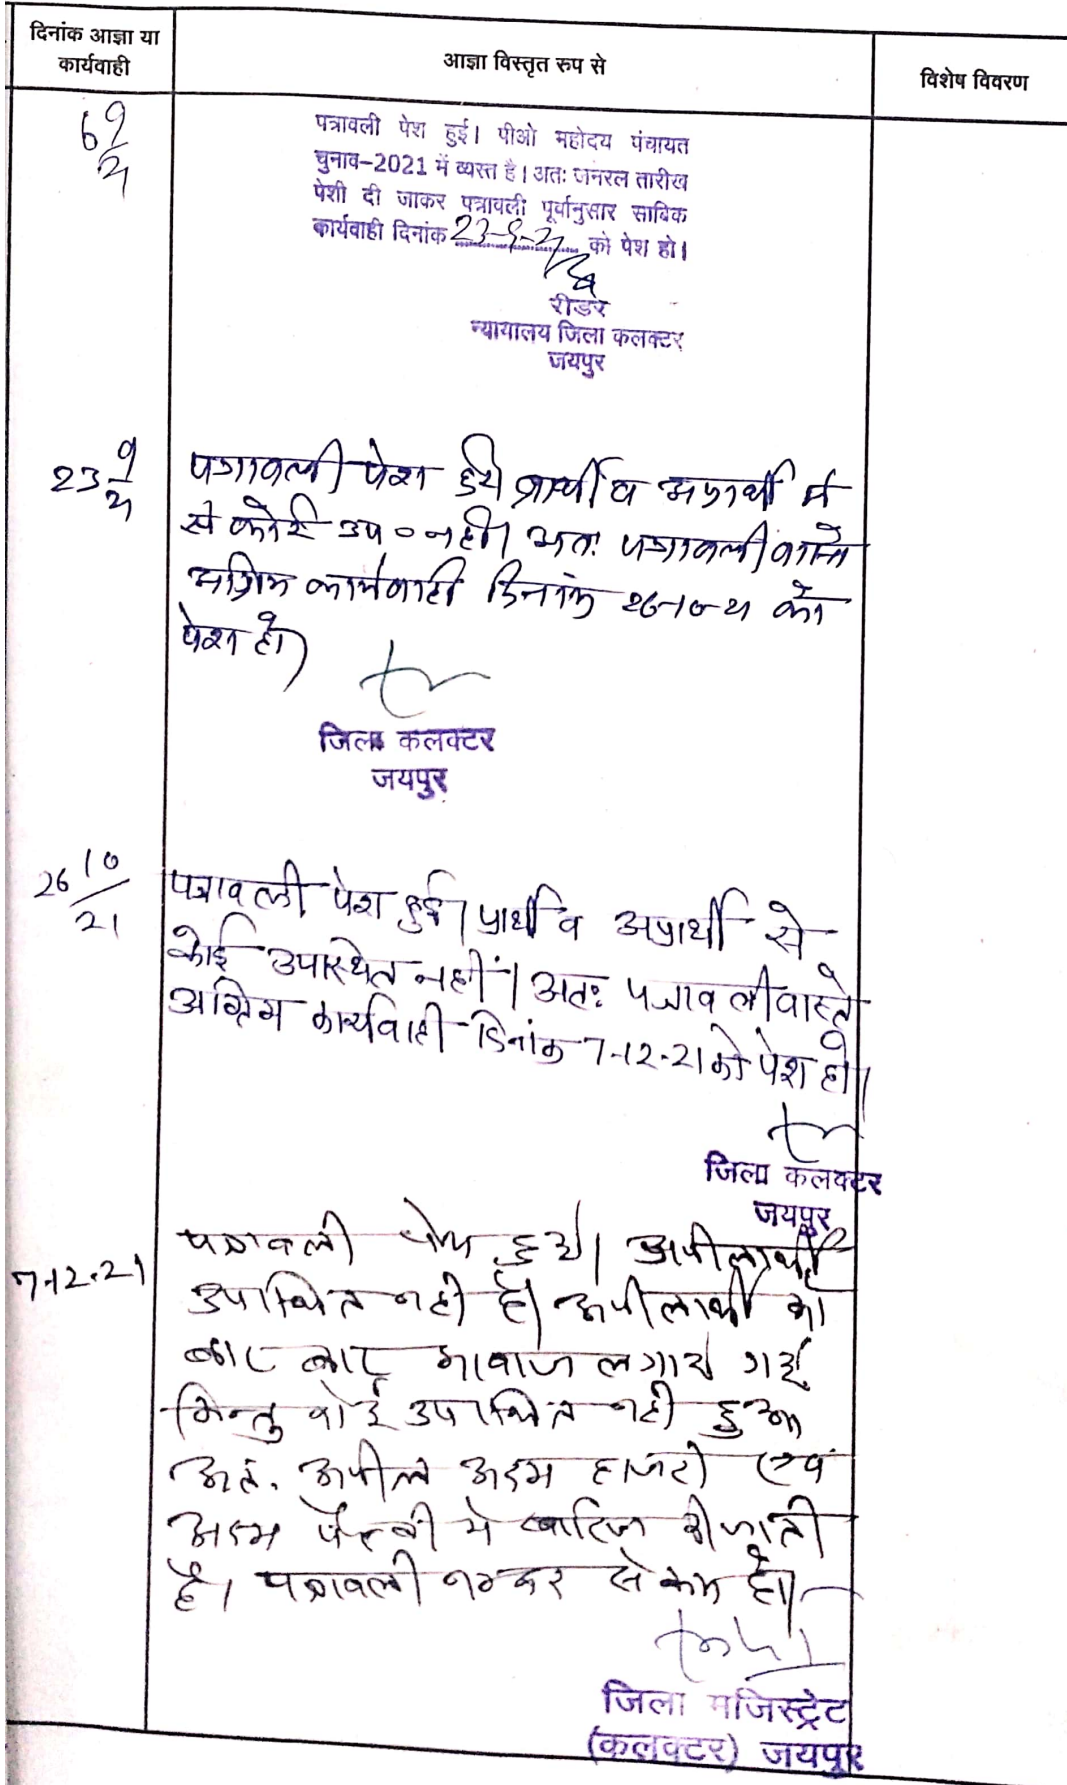 दिनांक आज्ञा या
कार्यवाही
आज्ञा विस्तृत रुप से
विशेष विवरण
6 9/21
पत्रावली पेश हुई। पीओ महोदय पंचायत
चुनाव-2021 में व्यस्त है। अतः जनरल तारीख
पेशी दी जाकर पत्रावली पूर्वानुसार साबिक
कार्यवाही दिनांक 23-9-21 को पेश हो।
रीडर
न्यायालय जिला कलक्टर
जयपुर
23 9/21
पत्रावली पेश हुयी प्रार्थी व अप्रार्थी में
से कोई उप० नहीं। अतः पत्रावली वास्ते
अग्रिम कार्यवाही दिनांक 26-10-21 को
पेश हो।
जिला कलक्टर
जयपुर
26 10/21
पत्रावली पेश हुई। प्रार्थी व अप्रार्थी से
कोई उपस्थित नहीं। अतः पत्रावली वास्ते
अग्रिम कार्यवाही दिनांक 7-12-21 को पेश हो।
जिला कलक्टर
जयपुर
7-12-21
पत्रावली पेश हुयी। अपीलार्थी
उपस्थित नही है। अपीलार्थी को
बार बार आवाज लगायी गई
किन्तु कोई उपस्थित नही हुआ
अतः अपील अदम हाजरी एवं
अदम पैरवी मे खारिज की जाती
है। पत्रावली नम्बर से कम हो।
जिला मजिस्ट्रेट
(कलक्टर) जयपुर